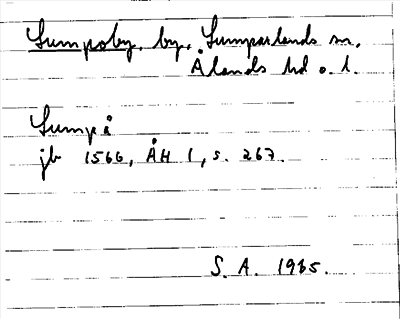 Lumpoby, by, Lumparlands sn.
Ålands hd o. l.
Lumpå
jb 1566, ÅH 1, s. 267.
S. A. 1965.